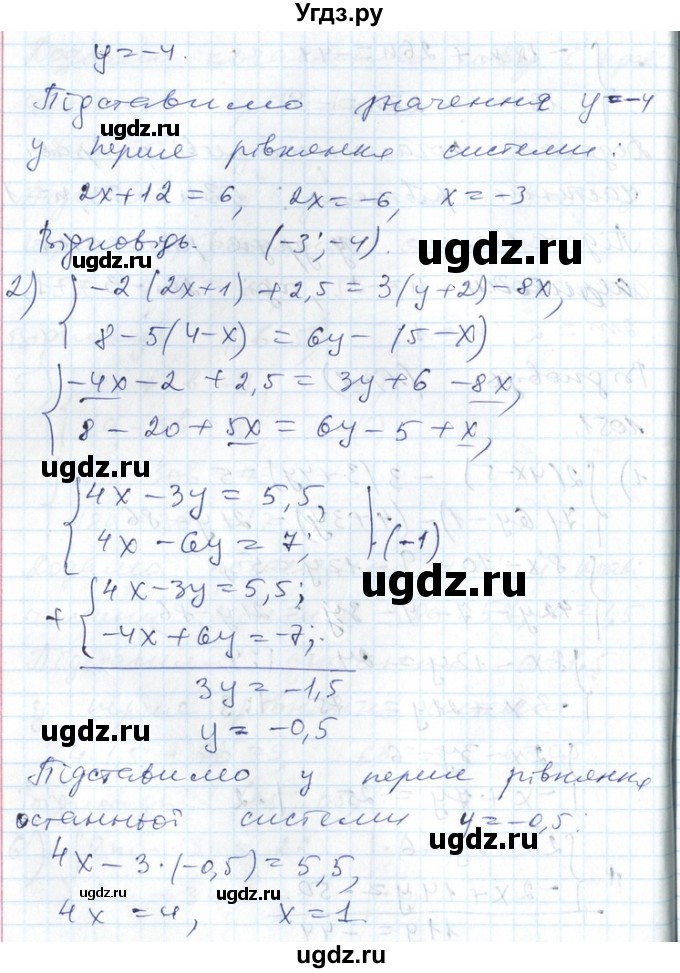 Угдз.ру
y = -4.
Підставимо значення y = -4
у перше рівняння системи:
2x + 12 = 6, 2x = -6, x = -3
Відповідь. (-3; -4).
2) { -2 · (2x + 1) + 2,5 = 3(y + 2) - 8x,
8 - 5(4 - x) = 6y - (5 - x)
{ -4x - 2 + 2,5 = 3y + 6 - 8x,
8 - 20 + 5x = 6y - 5 + x,
{ 4x - 3y = 5,5,
4x - 6y = 7; | · (-1)
+ { 4x - 3y = 5,5;
-4x + 6y = -7;
3y = -1,5
y = -0,5
Підставимо у перше рівняння
останньої системи y = -0,5:
4x - 3 · (-0,5) = 5,5,
4x = 4, x = 1.
ugdz.ru
ugdz.ru
ugdz.ru
ugdz.ru
ugdz.ru
ugdz.ru
ugdz.ru
ugdz.ru
ugdz.ru
ugdz.ru
ugdz.ru
ugdz.ru